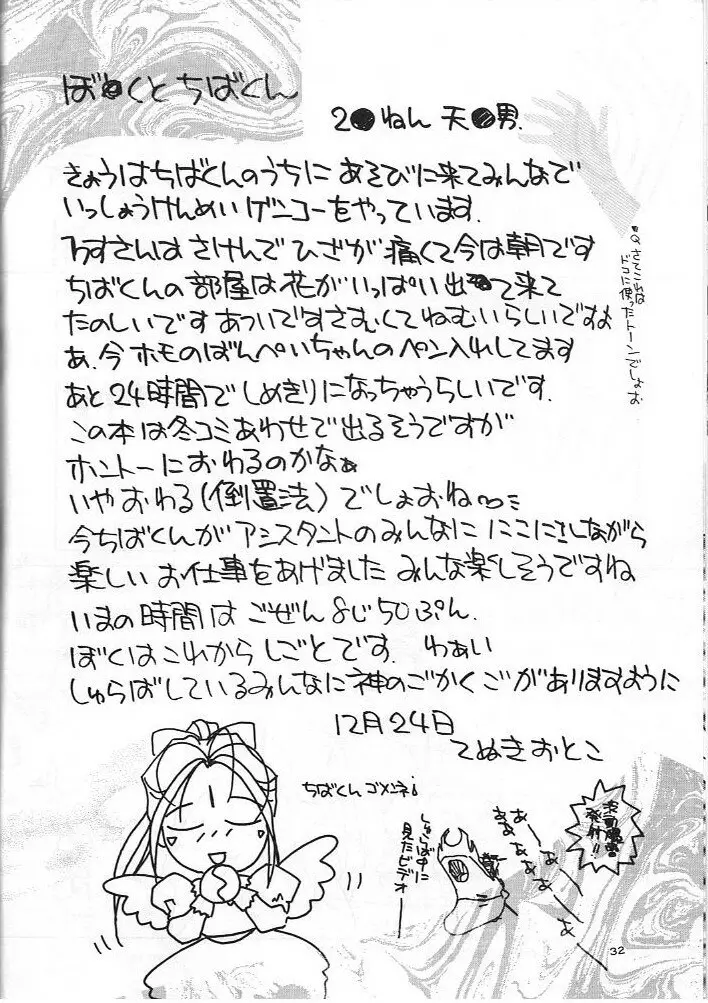 ぼ●くとちばくん
2●ねん 天●男.
きょうはちばくんのうちに あそびに来てみんなで
いっしょうけんめい ゲンコーをやっています.
さんは さけんで ひざが 痛くて今は朝です
ちばくんの部屋は花がいっぱい出て来て
たのしいです あついですさむくてねむいらしいですよ
あ、今 ホモのばんぺいちゃんの ペン入れしてます
あと24時間で しめきりになっちゃうらしいです.
この本は冬コミあわせで出るそうですが
ホントーにおわるのかなぁ
いやおわる(倒置法)でしょおね〜
今ちばくんが アシスタントのみんなに にこにこしながら
楽しい お仕事をあげました みんな楽しそうですね
いまの時間は ごぜん 8じ50ぷん.
ぼくはこれから しごとです. わぁい
しゅらばしているみんなに神のごかくごがありますように
12月24日
てぬきおとこ
さてこれは
ドコに使ったトーンでしょお
ちばくんゴメンネ
しゅらば中に
見たビデオ
あーーああ
発射!!
32